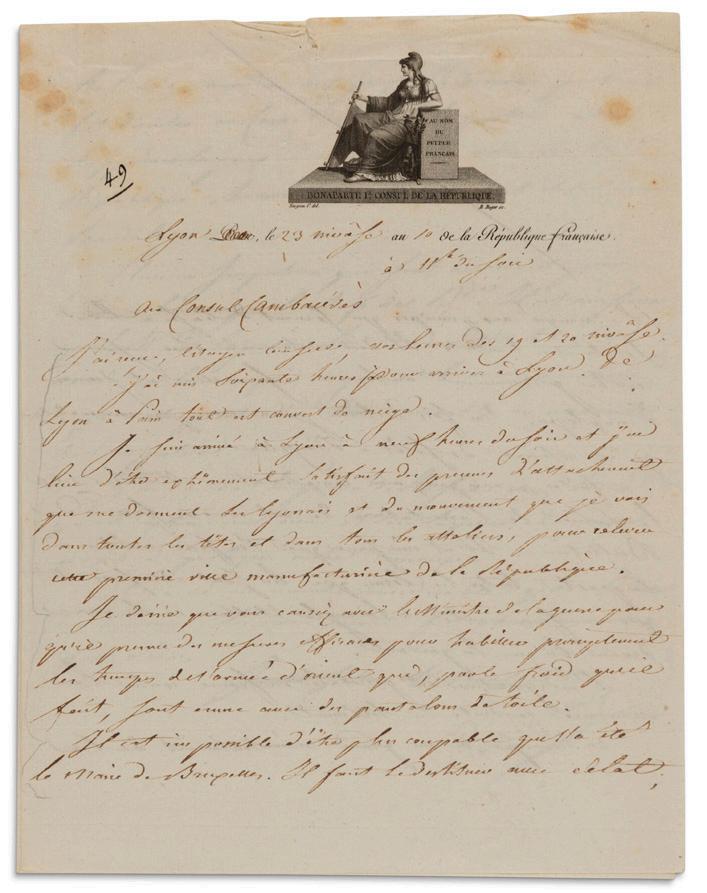 AU NOM
DU
PEUPLE
FRANÇAIS
49
BONAPARTE 1er CONSUL DE LA REPUBLIQUE.
B. Roger sc.
Lyon Paris, le 23 nivôse an 10 de la République française.
à 11 h du soir
Au Consul Cambacérès
J'ai reçu, citoyen Consul, vos lettres des 19 et 20 nivôse.
J'ai mis soixante heures pour arriver à Lyon. De
Lyon à Paris tout est couvert de neige.
Je suis arrivé à Lyon à neuf heures du soir et j'ai
lieu d'être extrêmement satisfait des preuves d'attachement
que me donnent les Lyonnais et du mouvement que je vois
dans toutes les têtes et dans tous les atteliers, pour relever
cette première ville manufacturière de la République.
Je désire que vous causiez avec le Ministre de la guerre pour
qu'il prenne des mesures efficaces pour habiller promptement
les troupes de l'armée d'orient qui, par le froid qu'il
fait, sont encore avec des pantalons de toile.
Il est impossible d'être plus coupable que l'a été
le Maire de Bruxelles. Il faut le destituer avec éclat,